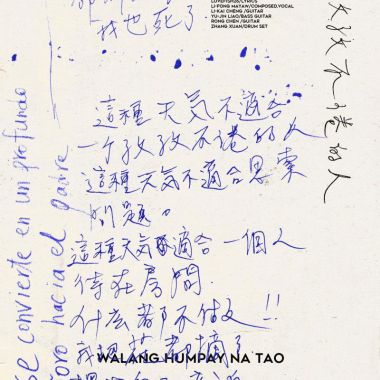 我也死了
LI-FONG MAYAW/COMPOSED,VOCAL
LI-KAI CHENG /GUITAR
YU-JIN LIAO/BASS GUITAR
RONG CHEN /GUITAR
ZHANG XUAN/DRUM SET
孜孜不倦的人
這種天気不適合
一个孜孜不倦的人
這種天気不適合思索
問題。
這種天気適合一個人
待在房間.
什么都不做!!
WALANG HUMPAY NA TAO
se convierte en un profundo
hacia el padre